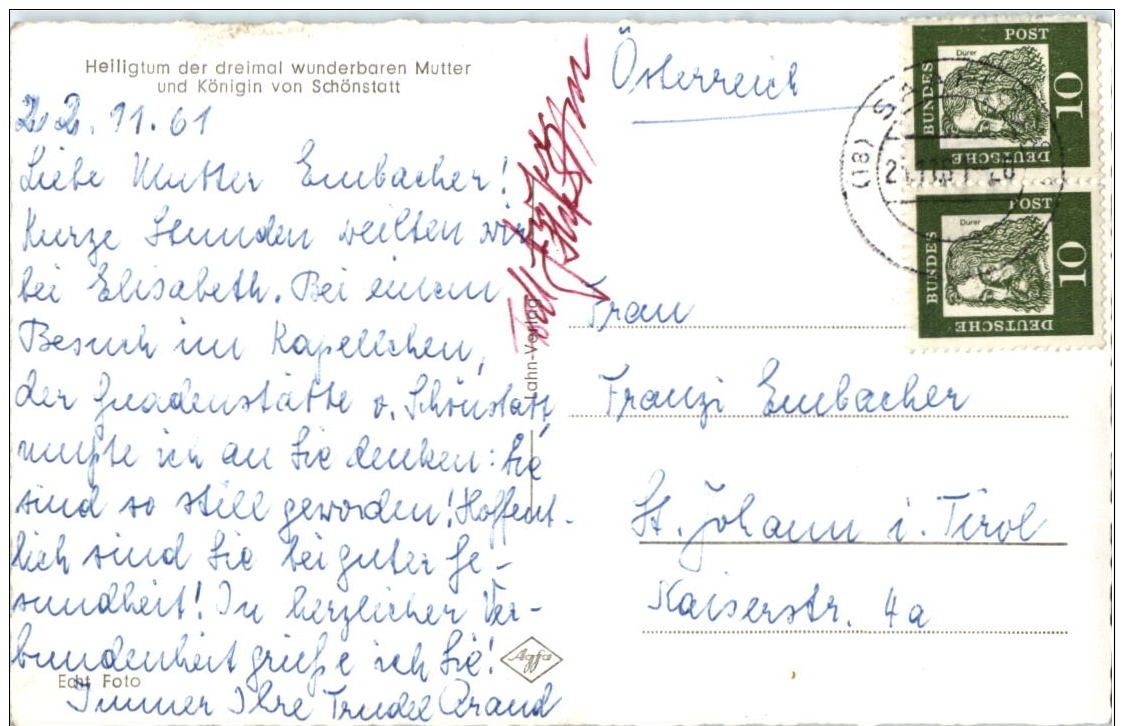 Heiligtum der dreimal wunderbaren Mutter
und Königin von Schönstatt
22. 11. 61
Liebe Mutter Embacher!
Kurze Stunden weilten wir
bei Elisabeth. Bei einem
Besuch im Kapellchen,
der Gnadenstätte v. Schönstatt,
mußte ich an Sie denken: Sie
sind so still geworden! Hoffent-
lich sind Sie bei guter Ge-
sundheit! In herzlicher Ver-
bundenheit grüße ich Sie!
Immer Ihre Trudel
Echt Foto
Lahn-Verlag
Agfa
Österreich
Frau
Franzi Embacher
St. Johann i. Tirol
Kaiserstr. 4a
DEUTSCHE BUNDESPOST
Dürer
10
DEUTSCHE BUNDESPOST
Dürer
10
(18)